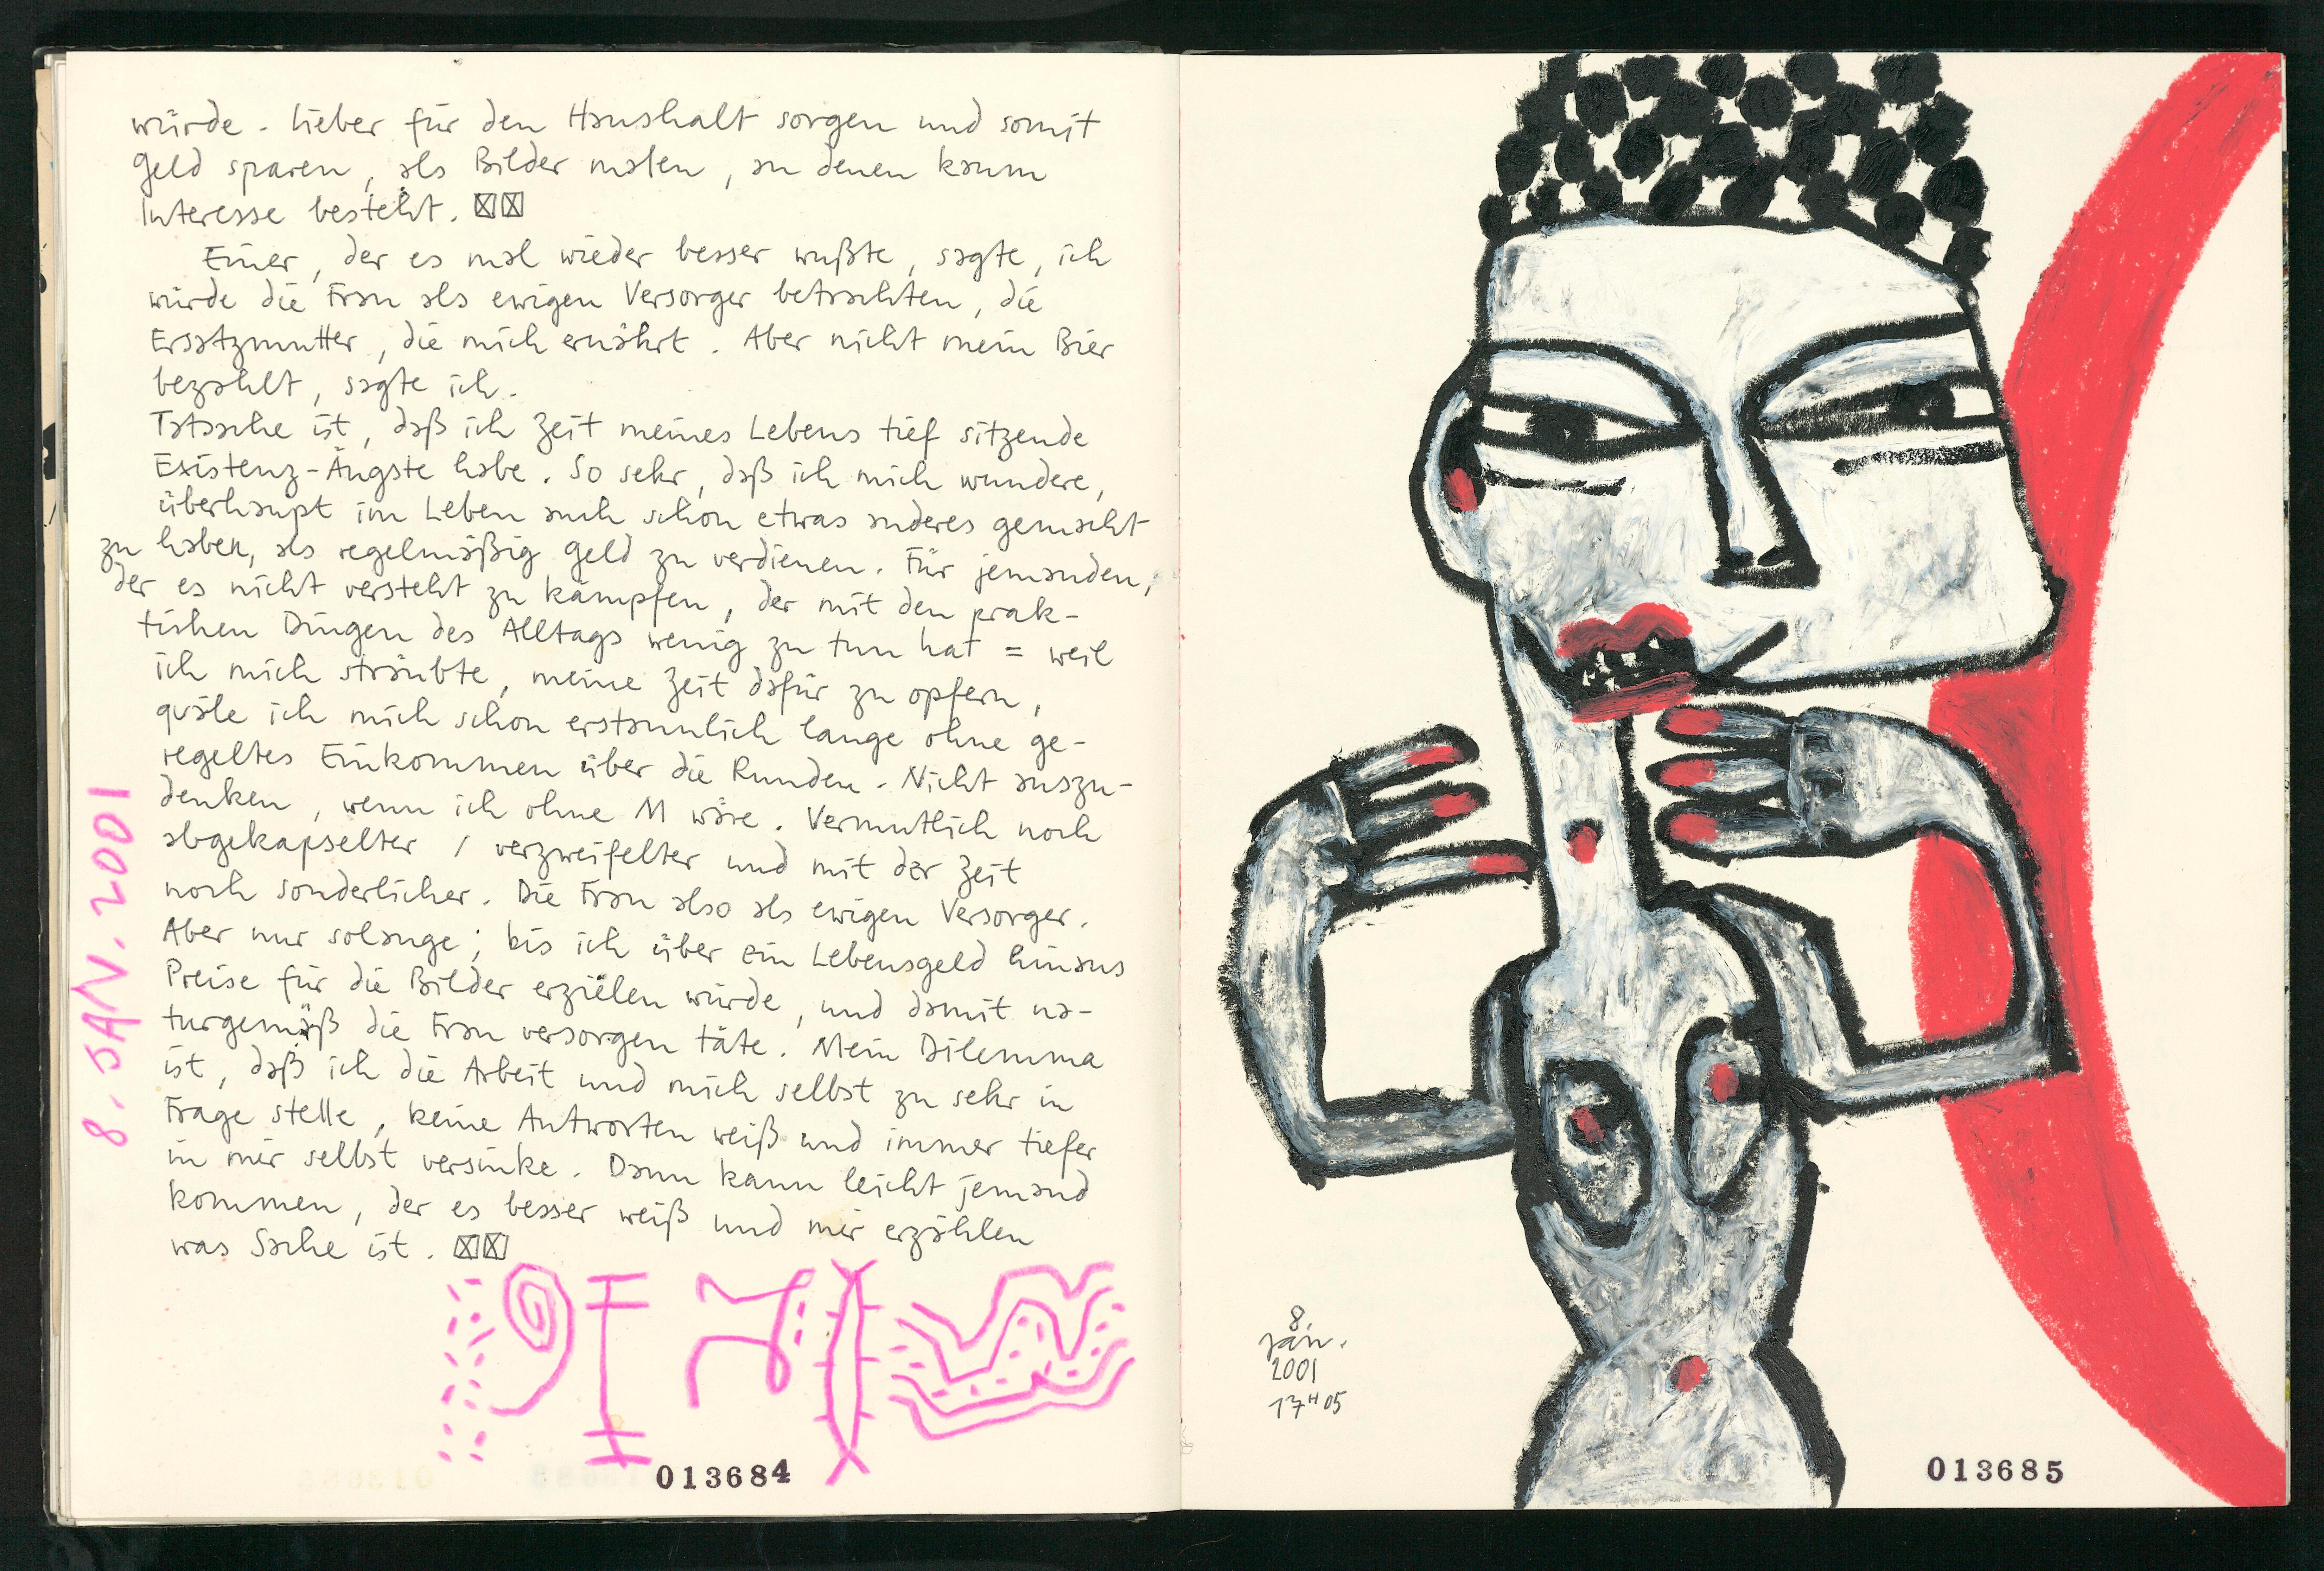 würde. Lieber für den Haushalt sorgen und somit
Geld sparen, als Bilder malen, an denen kaum
Interesse besteht. ☒☒
Einer, der es mal wieder besser wußte, sagte, ich
würde die Frau als ewigen Versorger betrachten, die
Ersatzmutter, die mich ernährt. Aber nicht mein Bier
bezahlt, sagte ich.
Tatsache ist, daß ich Zeit meines Lebens tief sitzende
Existenz-Ängste habe. So sehr, daß ich mich wundere,
überhaupt im Leben auch schon etwas anderes gemacht
zu haben, als regelmäßig Geld zu verdienen. Für jemanden,
der es nicht versteht zu kämpfen, der mit den prak-
tischen Dingen des Alltags wenig zu tun hat = weil
ich mich sträubte, meine Zeit dafür zu opfern,
quäle ich mich schon erstaunlich lange ohne ge-
regeltes Einkommen über die Runden. Nicht auszu-
denken, wenn ich ohne M wäre. Vermutlich noch
abgekapselter / verzweifelter und mit der Zeit
noch sonderlicher. Die Frau also als ewigen Versorger.
Aber nur solange, bis ich über ein Lebensgeld hinaus
Preise für die Bilder erzielen würde, und damit na-
turgemäß die Frau versorgen täte. Mein Dilemma
ist, daß ich die Arbeit und mich selbst zu sehr in
Frage stelle, keine Antworten weiß und immer tiefer
in mir selbst versinke. Dann kann leicht jemand
kommen, der es besser weiß und mir erzählen
was Sache ist. ☒☒
8. JAN. 2001
013684
8.
Jan.
2001
17H05
013685